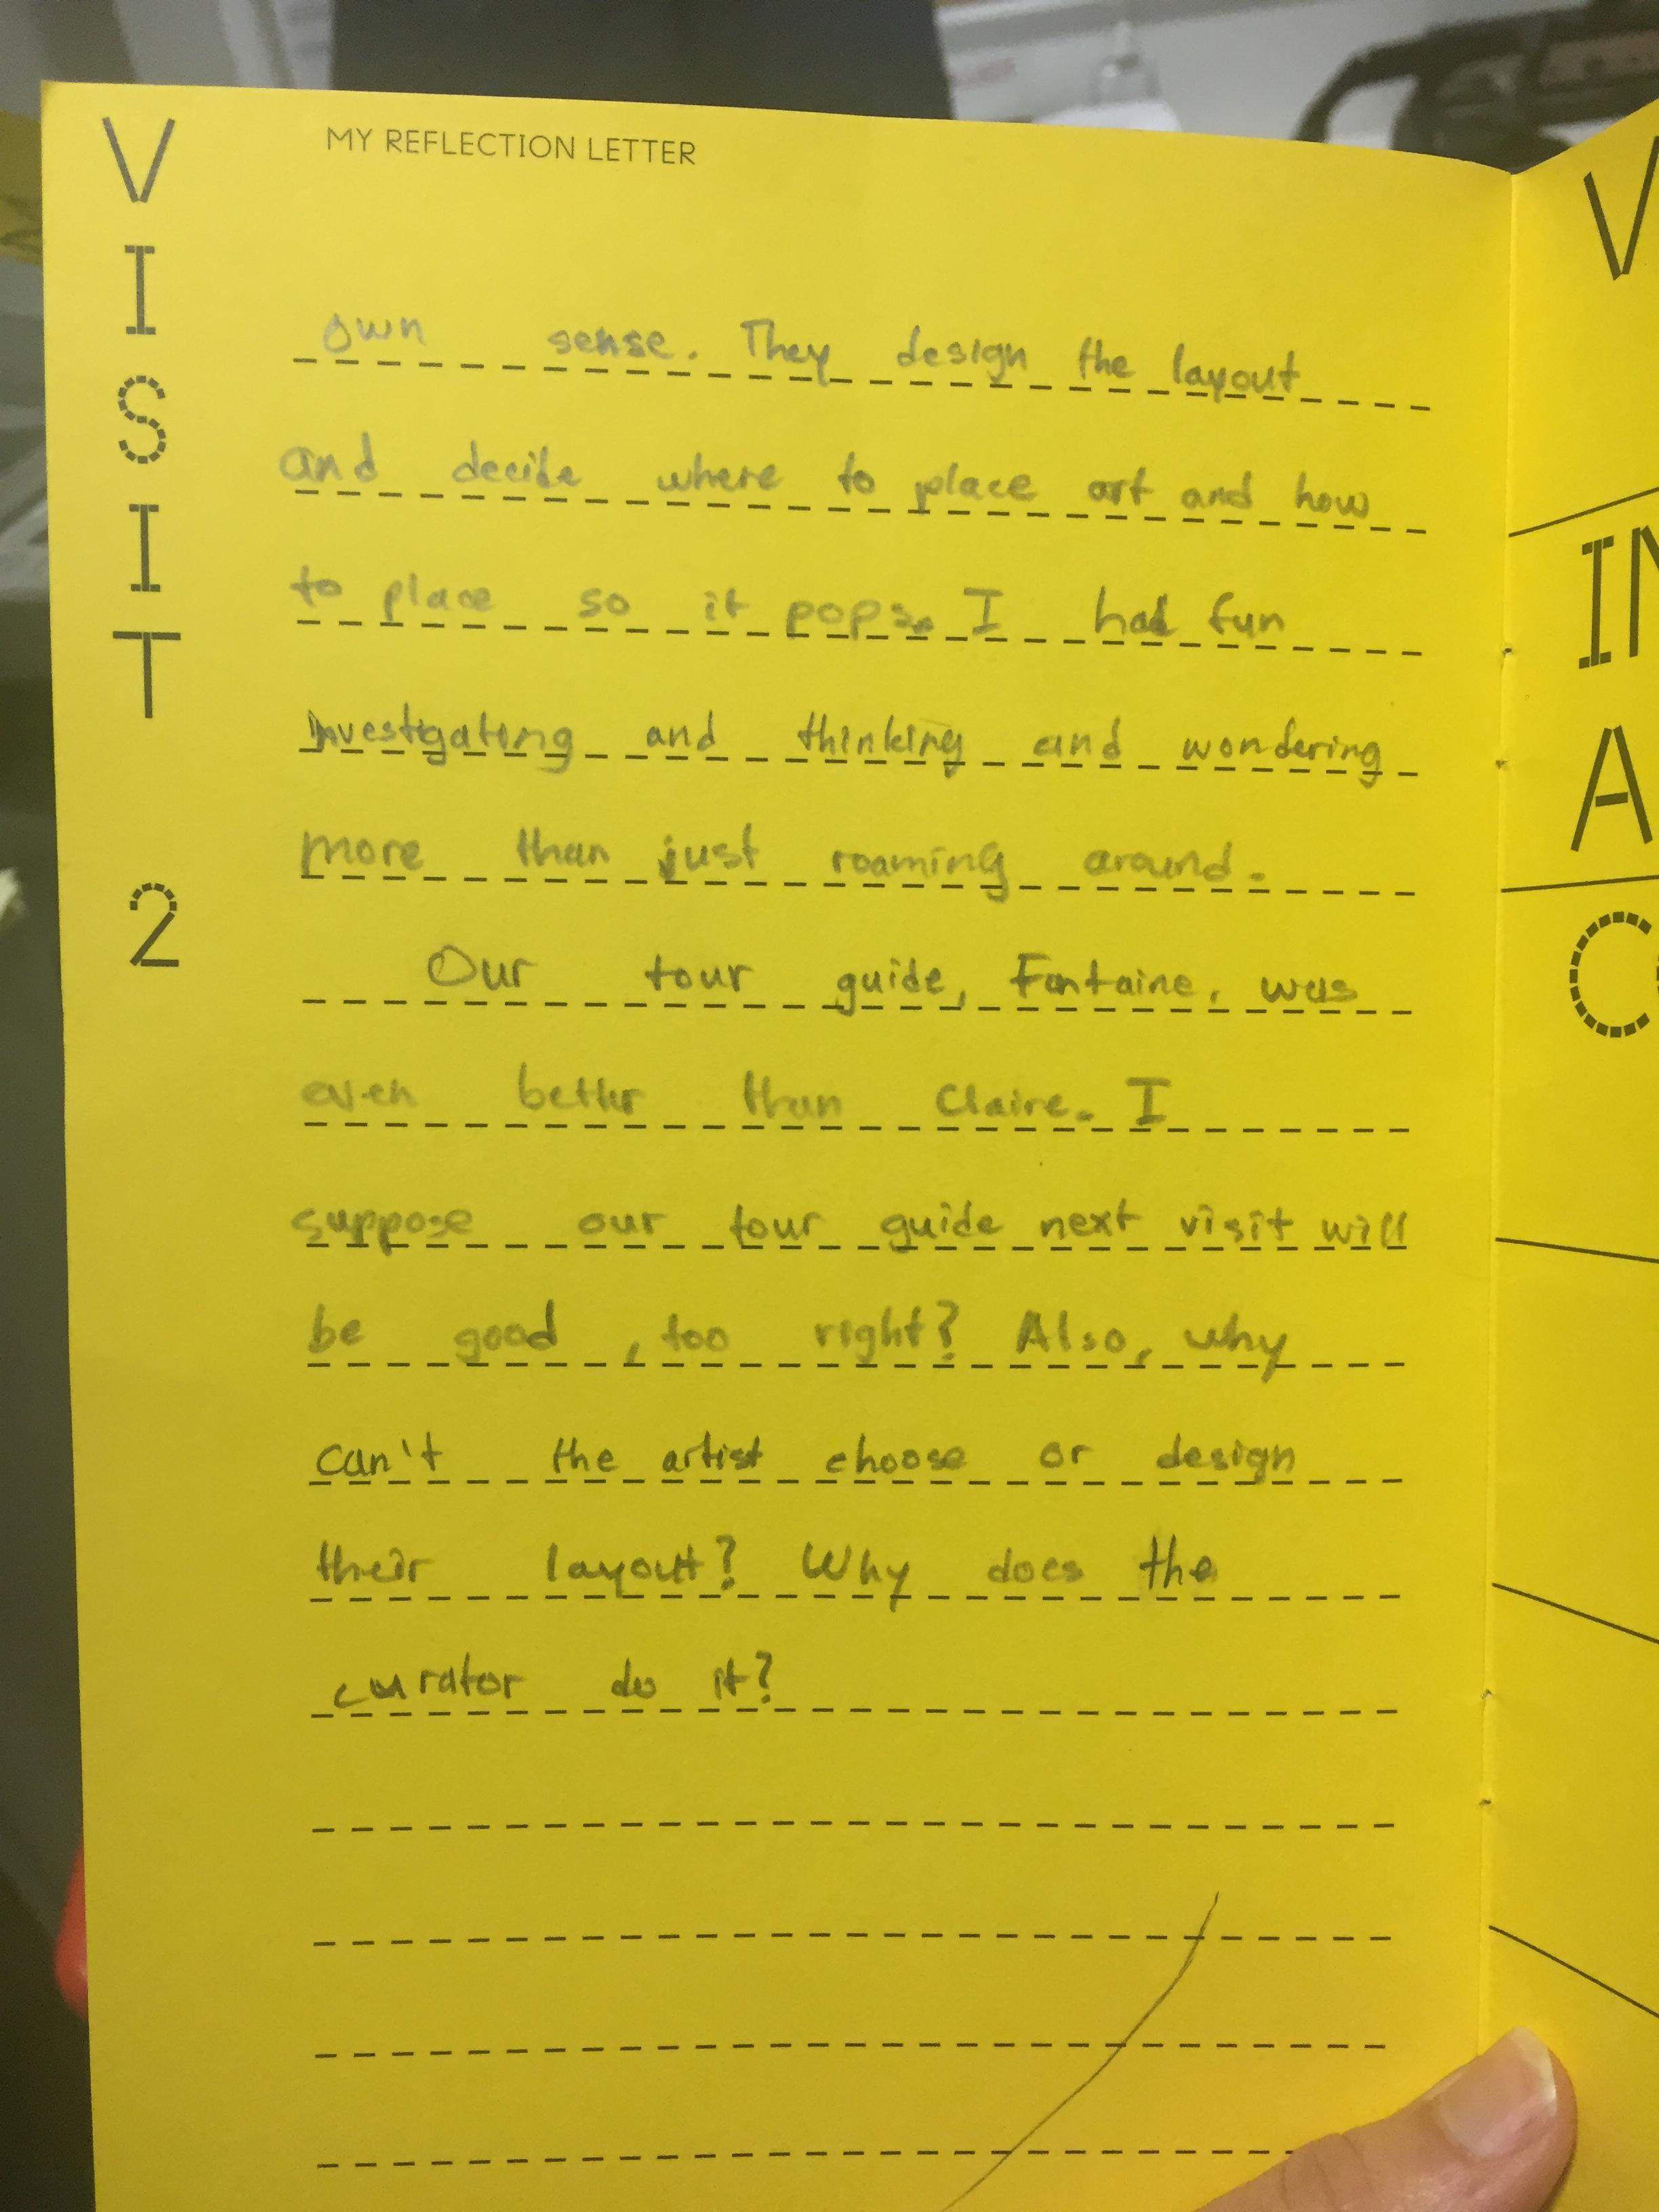 MY REFLECTION LETTER
VISIT 2
own sense. They design the layout
and decide where to place art and how
to place so it pops. I had fun
Investigating and thinking and wondering
more than just roaming around.
Our tour guide, Fontaine, was
even better than Claire. I
suppose our tour guide next visit will
be good, too right? Also, why
can't the artist choose or design
their layout? Why does the
curator do it?
V
IN
A
C